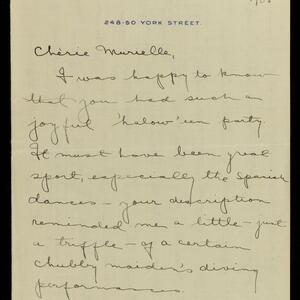 248-50 YORK STREET.
Chèrie Murielle,
I was happy to know
that you had such an
joyful 'halow'en party
It must have been great
sport, especially the Spanish
dances – your description
reminded me a little – just
a triffle – of a certain
chubby maiden's diving
performances.